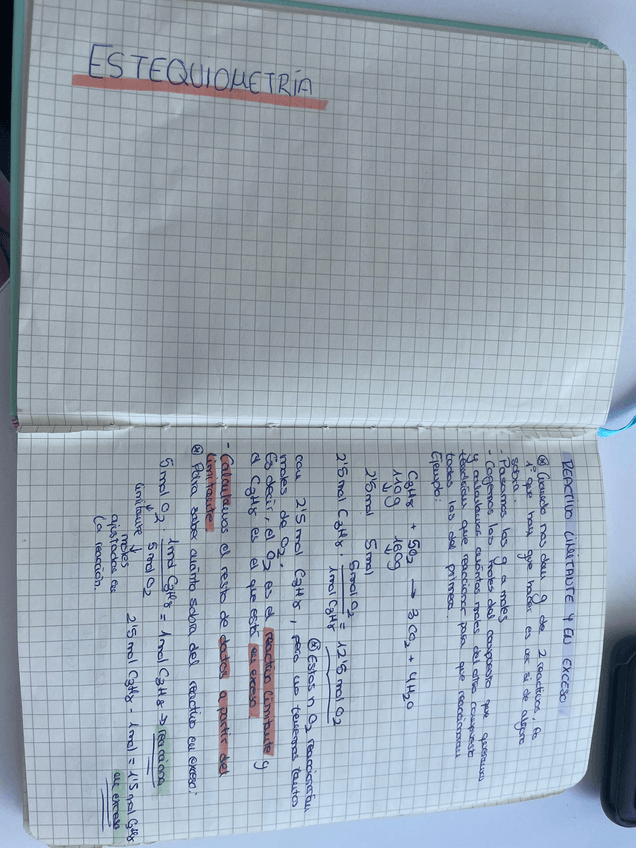 ESTEQUIOMETRÍA
REACTIVO LIMITANTE Y EN EXCESO
⊛ Cuando nos dan g de 2 reactivos, lo
1º que hay que hacer es ver si de alguno
sobra.
- Pasamos los g a moles
- Cogemos los moles del compuesto que queramos
y calculamos cuántos moles del otro compuesto
tendrían que reaccionar para que reaccionaran
todos los del primero.
Ejemplo:
C3H8 + 5O2 → 3CO2 + 4H2O
110g 160g
2'5mol 5mol
2'5 mol C3H8 · 5mol O2 / 1mol C3H8 = 12'5 mol O2
⊛ Estos n O2 reaccionarían
con 2'5 mol C3H8, pero no tenemos tantos
moles de O2.
Es decir, el O2 es el reactivo limitante y
el C3H8 es el que está en exceso
- Calculamos el resto de datos a partir del
limitante
⊛ Para saber cuánto sobra del reactivo en exceso:
5mol O2 · 1mol C3H8 / 5mol O2 = 1mol C3H8 → reacciona
limitante
moles
ajustados en
la reacción.
2'5 mol C3H8 - 1mol = 1'5 mol C3H8
en exceso